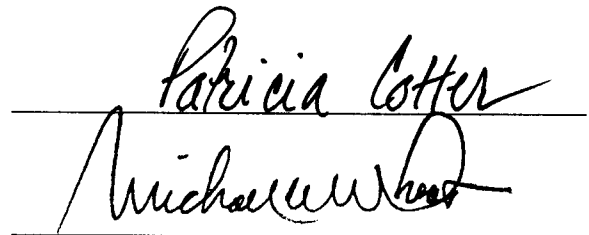 Patricia Cotter
Michael E Wheat